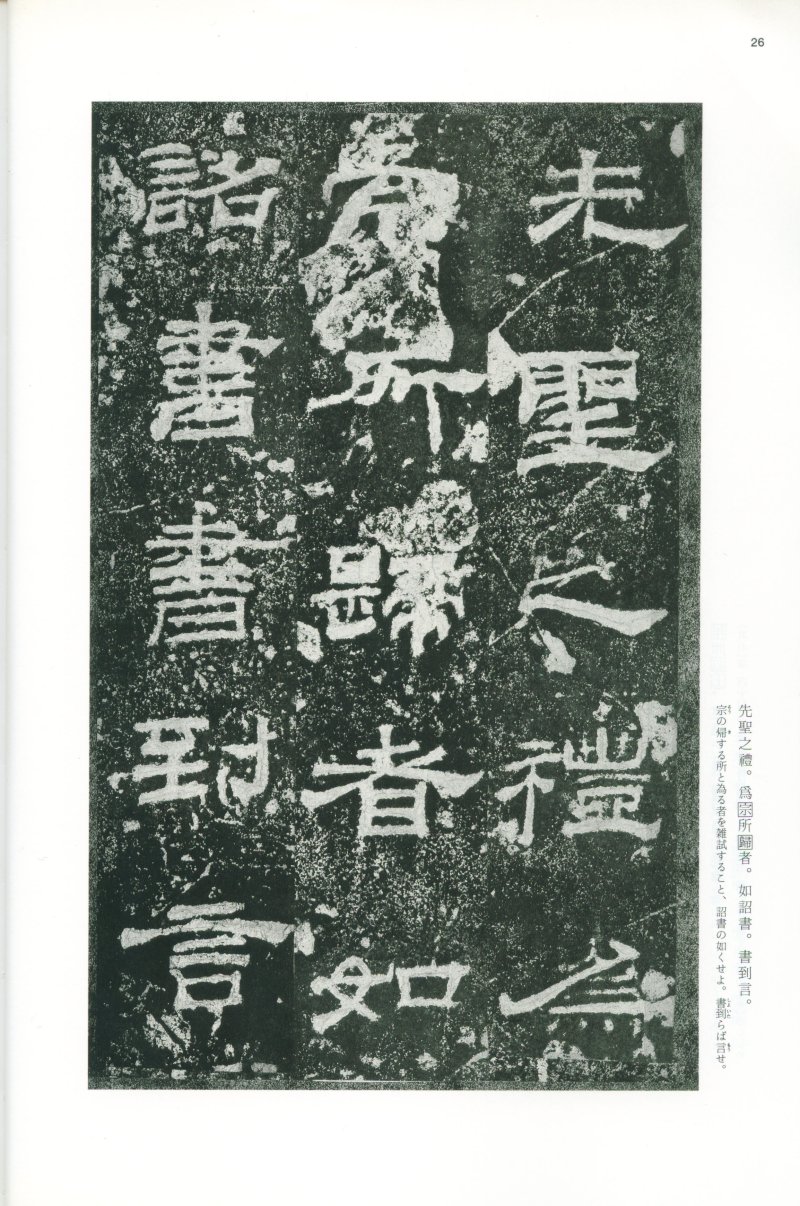 26
先聖之禮爲
宗所歸者如
詔書書到言
先聖之禮。爲宗所歸者。如詔書。書到言。
宗の帰する所と為る者を雑試すること、詔書の如くせよ。書到らば言せ。